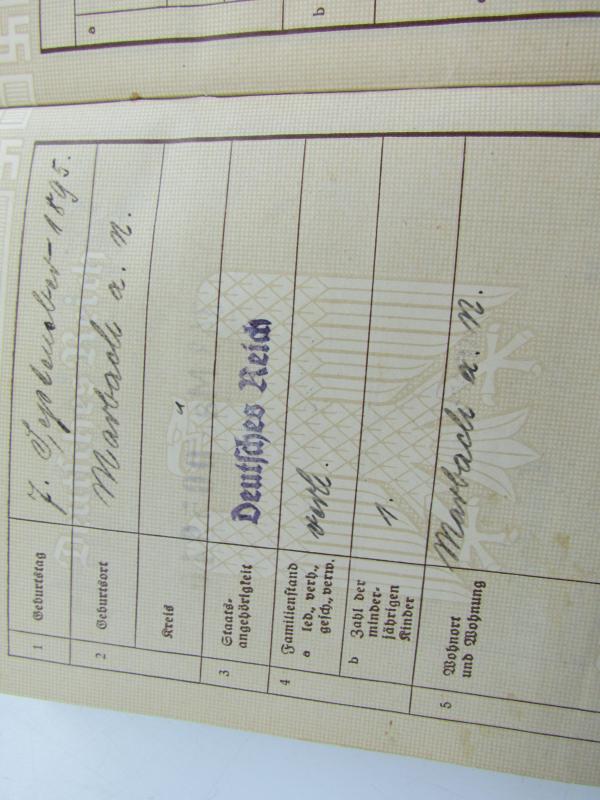 a
b
1 Geburtstag 7. September 1895.
2 Geburtsort Marbach a. N.
Kreis
3 Staats-
angehörigkeit Deutsches Reich
4 Familienstand
a led., verh.,
gesch., verw. verh.
b Zahl der
minder-
jährigen
Kinder 1.
5 Wohnort
und Wohnung Marbach a. N.